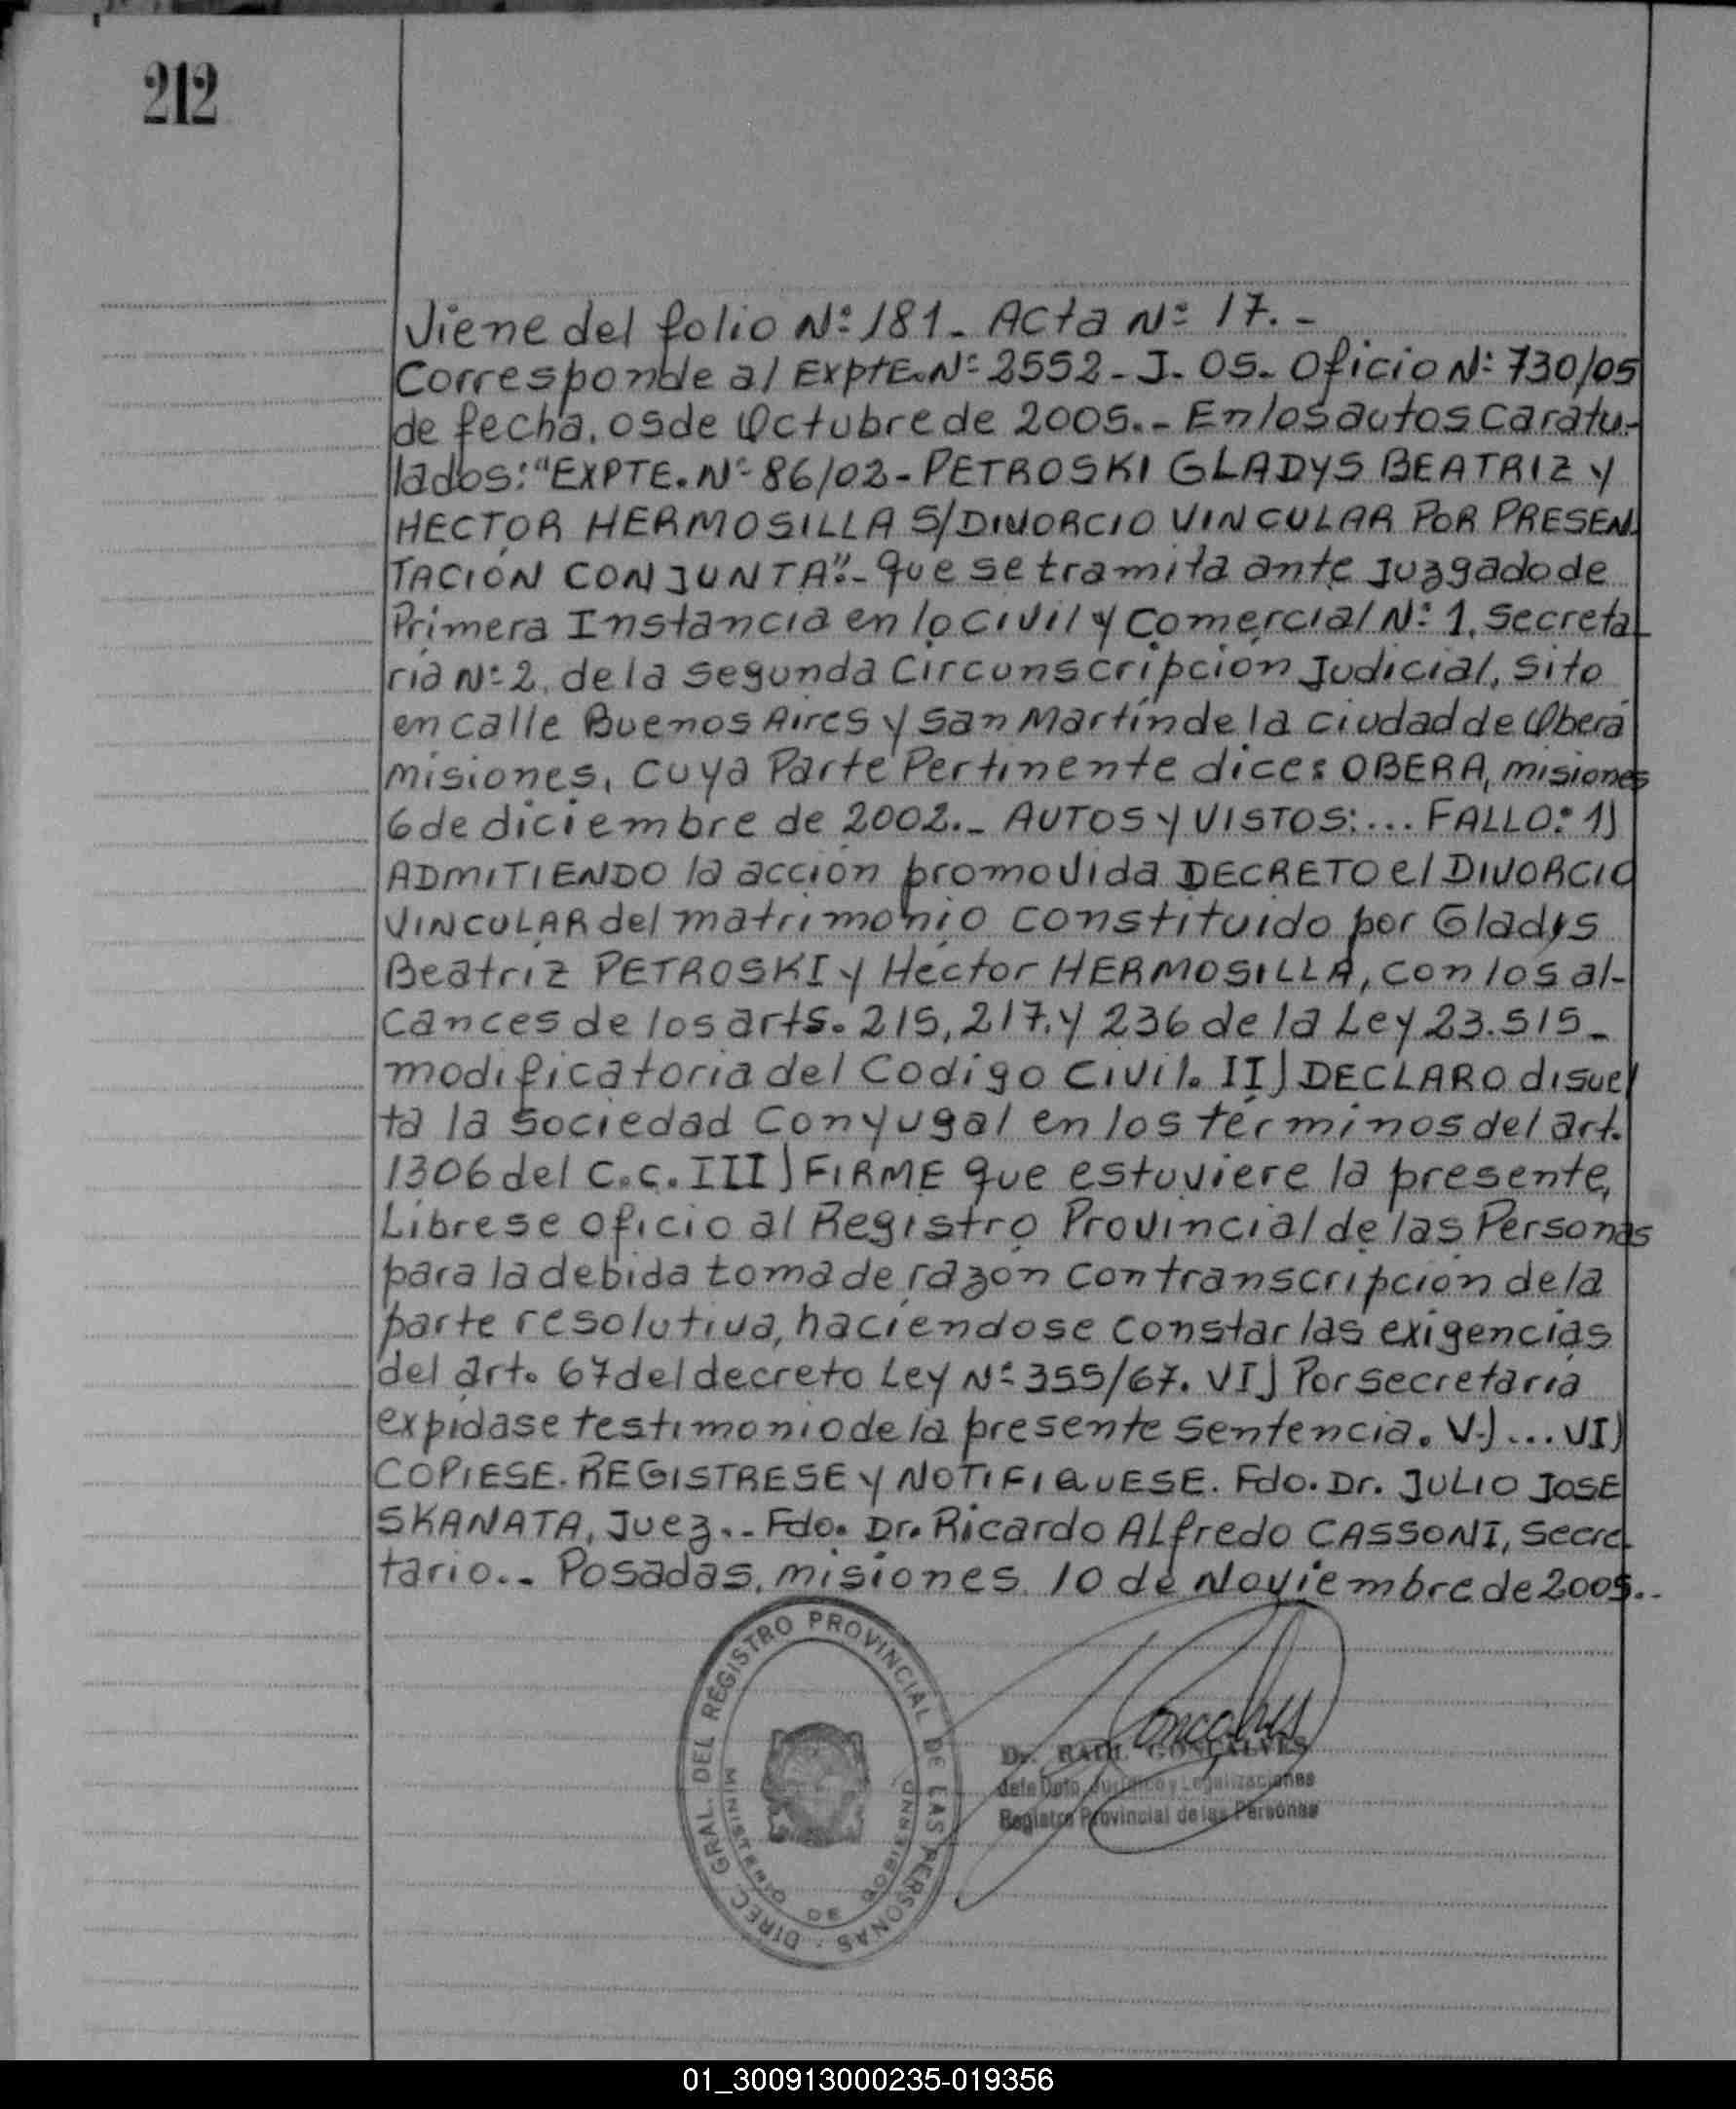 212
Viene del folio Nº 181_ Acta Nº 17._
Corresponde al ExptE.Nº 2552_J_05_ Oficio Nº 730/05
de fecha, 05 de Octubre de 2005._ En los autos caratu-
lados: "EXPTE. Nº 86/02- PETROSKI GLADYS BEATRIZ y
HECTOR HERMOSILLA S/DIVORCIO VINCULAR POR PRESEN-
TACIÓN CONJUNTA"._ que se tramita ante Juzgado de
Primera Instancia en lo Civil y Comercial Nº 1, Secreta-
ría Nº 2, de la Segunda Circunscripción Judicial, sito
en calle Buenos Aires y San Martín de la ciudad de Oberá
misiones, cuya Parte Pertinente dice: OBERA, misiones
6 de diciembre de 2002._ AUTOS y VISTOS:... FALLO: 1)
ADMITIENDO la acción promovida DECRETO el DIVORCIO
VINCULAR del matrimonio constituido por Gladys
Beatriz PETROSKI y Hector HERMOSILLA, con los al-
cances de los arts. 215, 217. y 236 de la Ley 23.515_
modificatoria del Codigo Civil. II) DECLARO disuel
ta la Sociedad Conyugal en los términos del art.
1306 del C.C. III) FIRME que estuviere la presente,
Líbrese oficio al Registro Provincial de las Personas
para la debida toma de razón con transcripción de la
parte resolutiva, haciéndose constar las exigencias
del art. 67 del decreto Ley Nº 355/67. VI) Por Secretaría
expídase testimonio de la presente sentencia. V.)... VI)
COPIESE. REGISTRESE y NOTIFIQUESE. Fdo. Dr. JULIO JOSE
SKANATA, Juez._ Fdo. Dr. Ricardo ALfredo CASSONI, Secre-
tario._ Posadas, misiones 10 de Noviembre de 2005._
DIREC. GRAL. DEL REGISTRO PROVINCIAL DE LAS PERSONAS
MINISTERIO DE GOBIERNO
Dr. RAUL GONCALVES
Jefe Dpto. Jurídico y Legalizaciones
Registro Provincial de las Personas
01_300913000235-019356